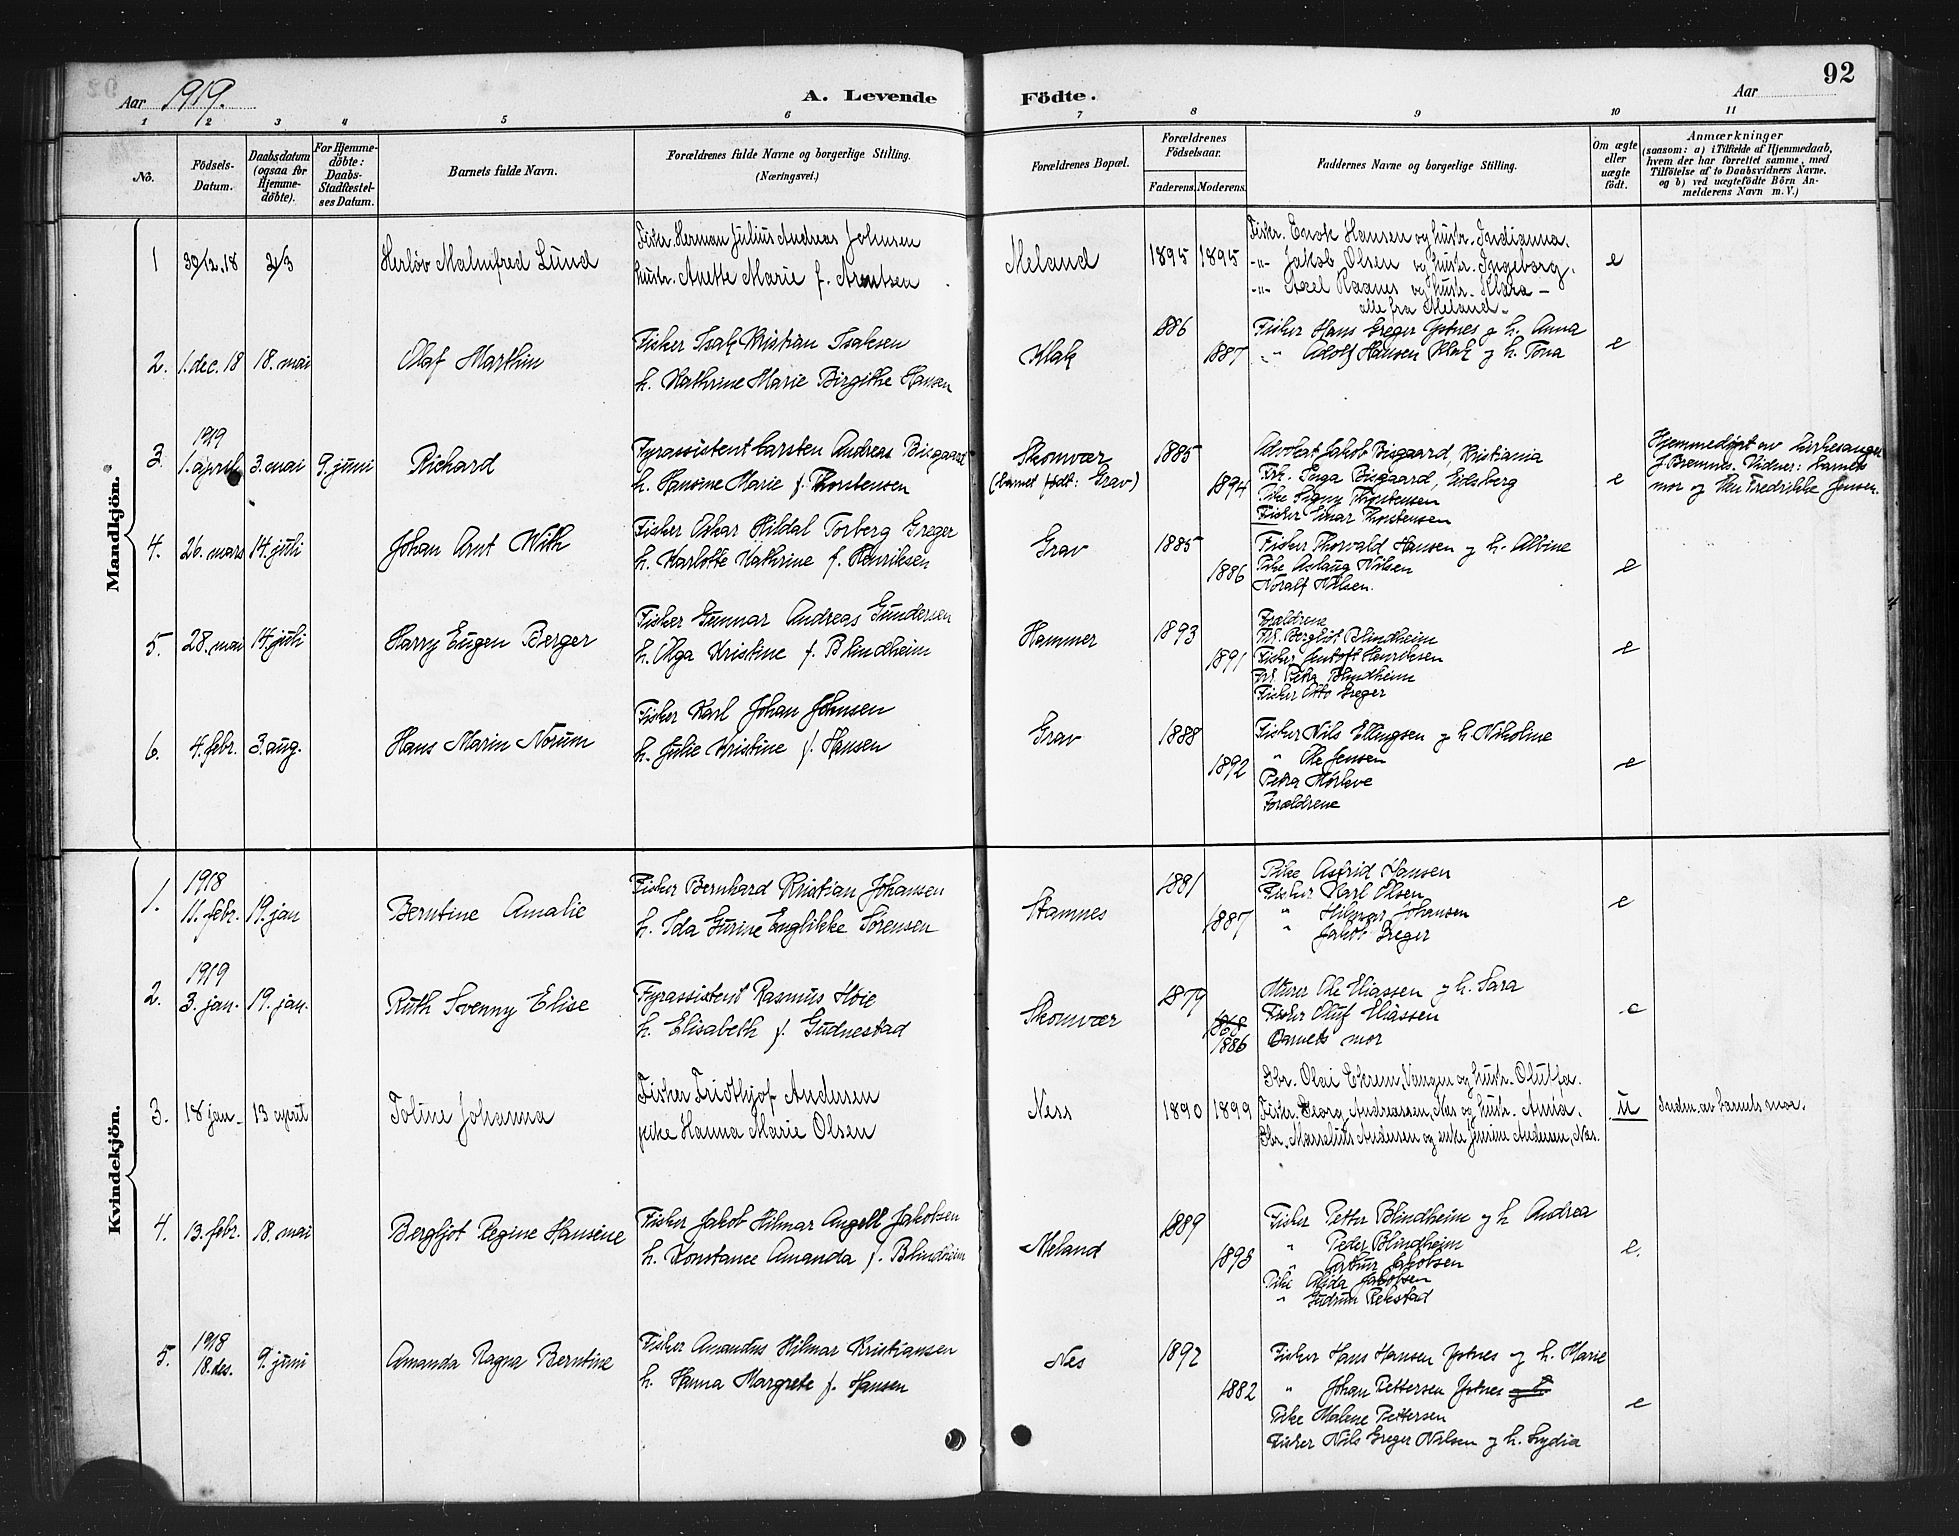 92
Aar 1919.
A. Levende Födte.
Aar
1 2 3 4 5 6 7 8 9 10 11
No.
Födsels-Datum.
Daabsdatum (ogsaa for Hjemme-döbte).
For Hjemme-döbte: Daabs-Stadfæstel-ses Datum.
Barnets fulde Navn.
Forældrenes fulde Navne og borgerlige Stilling.
(Næringsvei.)
Forældrenes Bopæl.
Forældrenes Födselsaar.
Faderens. Moderens.
Faddernes Navne og borgerlige Stilling.
Om ægte eller uægte födt.
Anmærkninger
(saasom: a) i Tilfælde af Hjemmedaab,
hvem der har forrettet samme, med
Tilföielse af to Daabsvidners Navne.
og b) ved uægtefödte Börn An-
melderens Navn m. V.)
Mandkjön.
1 30/12.18 2/3 Herlöv Malmfred Lund
Fisker. Herman Julius Andreas Johnsen
hustr. Anette Marie f. Arntsen
Meland 1895 1895
Fisker. Enok Hansen og hustr. Indianna.
-"- Jakob Olsen og hustr. Ingeborg.
-"- Axel Raanes og hustr. Klara -
alle fra Meland.
e
2. 1. dec. 18 18. mai Olaf Marthin
Fisker Isak Kristian Isaksen
h. Kathrine Marie Birgithe Hansen
Klak 1886 1887
Fisker Hans Greger Ystnes og h. Anna
" Adolf Hansen Klak og h. Tona
e
3. 1919 1. april 3. mai 9. juni Richard
Fyrassistent Carsten Andreas Bisgaard
h. Hansine Marie f. Thorstensen
Skomvær
(barnet födt: Grav)
1885 1894
Advokat Jakob Bisgaard, Kristiania
Frk. Inga Bisgaard, Eidsberg
Pike Signy Thorstensen
Fisker Einar Thorstensen
e
Hjemmedöpt av kirkesanger
J. Bremnes. Vidner: barnets
mor og Fredrikke Jensen.
4. 26. mars 14. juli Johan Arnt With
Fisker Oskar Hildal Torberg Greger
h. Karlotte Kathrine f. Henriksen
Grav 1885 1886
Fisker Thorvald Hansen og h. Albine
Pike Aslaug Nilsen
Noralf Nilsen.
e
5. 28. mai 14. juli Harry Eugen Berger
Fisker Gunnar Andreas Gundersen
h. Olga Kristine f. Blindheim
Hammer 1893 1891
Forældrene
Frk. Bergliot Blindheim
Fisker Jentoft Henriksen
Frk. Petra Blindheim
Fisker Otto Greger
e
6. 4. febr. 3. aug. Hans Marin Norum
Fisker Karl Johan Johnsen
h. Julie Kristine f. Hansen
Grav 1888 1892
Fisker Nils Ellingsen og h. Nikoline
" Ole Jensen
Petra
Forældrene
e
Kvindekjön.
1. 1918 11. febr. 19. jan Berntine Amalie
Fisker Bernhard Kristian Johansen
h. Ida Gurine Englikke Sörensen
Stamnes 1881 1887
Pike Astrid Hansen
Fisker Karl Olsen
" Hilmar Johansen
" Jakob Greger
e
2. 1919 3. jan. 19. jan. Ruth Svenny Elise
Fyrassistent Rasmus Höie
h. Elisabeth f. Gudnestad
Skomvær 1879 1868 1886
Murer Ole Eliassen og h. Sara
Fisker Oluf Eliassen
Barnets mor
e
3. 18 jan. 13 april Toline Johanna
Fisker Fridthjof Andersen
pike Hanna Marie Olsen
Ness 1890 1899
Gbr. Olai Ekrem, Vangen og hustr. Olufa.
Fisker. Georg Andreassen, Nes og hustr. Anna.
Gbr. Andersen og enke Jenine Andersen, Nes.
u
Inden. av barnets mor.
4. 13. febr. 18. mai Bergljot Regine Hansine
Fisker Jakob Hilmar Angell Jakobsen
h. Konstance Amanda f. Blindheim
Meland 1889 1893
Fisker Petter Blindheim og h Andrea
" Peder Blindheim
" Artur Jakobsen
Pike Alida Jakobsen
" Gudrun Rekstad
e.
5. 1918 18. des. 9. juni Amanda Ragna Berntine
Fisker Amandus Hilmar Kristiansen
h. Hanna Margrete f. Hansen
Nes 1892 1882
Fisker Hans Hansen Ystnes og h. Marie
" Johan Pettersen Ystnes og h
Pike Malene Pettersen
Fisker Nils Greger Nilsen og h. Lydia
e